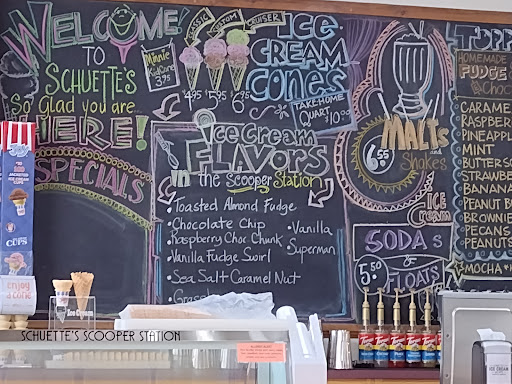 WELCOME
TO
SCHUETTE'S
So Glad you are
HERE!
SPECIALS
Minnie
Kid Cone
3.95
CLASSIC
CUSTOM
CRUISER
4.95
5.95
6.95
ICE
CREAM
CONES
TAKE HOME
QUART
Ice Cream
FLAVORS
in the Scooper Station
• Toasted Almond Fudge
• Chocolate Chip
• Raspberry Choc Chunk
• Vanilla Fudge Swirl
• Sea Salt Caramel Nut
• Vanilla
• Superman
MALTs
and
Shakes
6.55
ICE
Cream
SODAs
&
FLOATS
5.50
TOPP
HOMEMADE
FUDGE
Choc
CARAME
RASPBER
PINEAPPL
MINT
BUTTERSC
STRAWBE
BANANA
PEANUT BU
BROWNIE
PECANS
PEANUTS
MOCHA
CUPS
enjoy
a cone
Ice Cream
SCHUETTE'S SCOOPER STATION